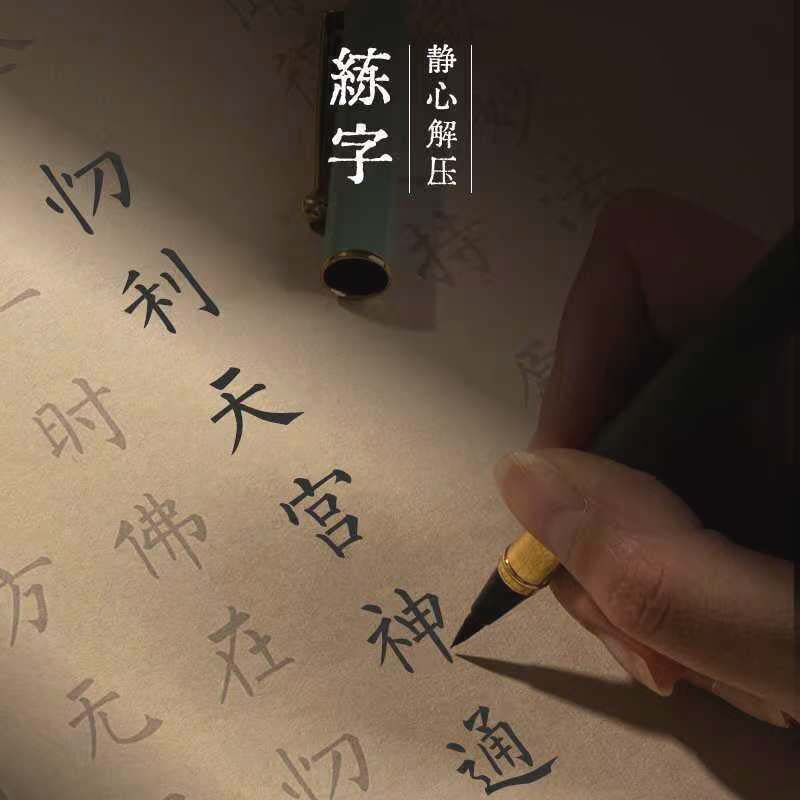 練字
静心解压
忉利天宫神通
一时佛在忉
方无